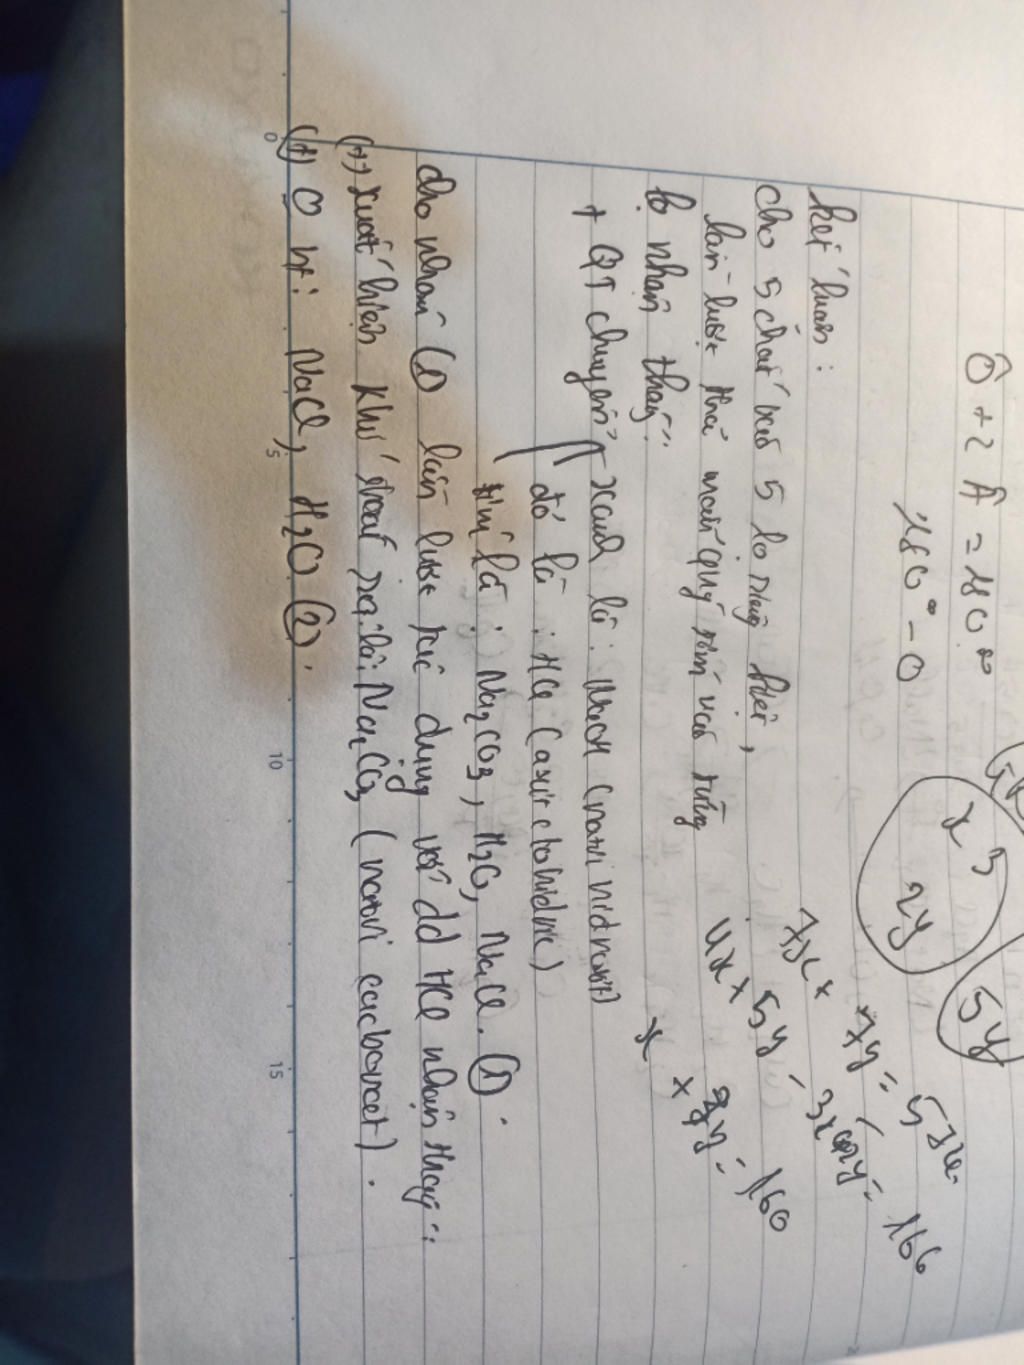 Ô + 2 Â = 180°
180° - O
x 3
2y
5y
7x + 7y = 532
4x + 5y - 3x 2y = 166
x + 7y = 160
kết luận :
cho 5 chất vào 5 lọ riêng biệt,
lần lượt thả mẩu quỳ tím vào từng
lọ nhận thấy:
+ QT chuyển xanh là : NaOH (natri hidroxit)
đỏ là : HCl (axit clohidric)
tím là : Na2CO3, H2O, NaCl. (1).
cho nhóm (1) lần lượt tác dụng với dd HCl nhận thấy:
(+) xuất hiện khí thoát ra là: Na2CO3 (natri cacbonat).
(+) O ht: NaCl, H2O (2).
0 5 10 15